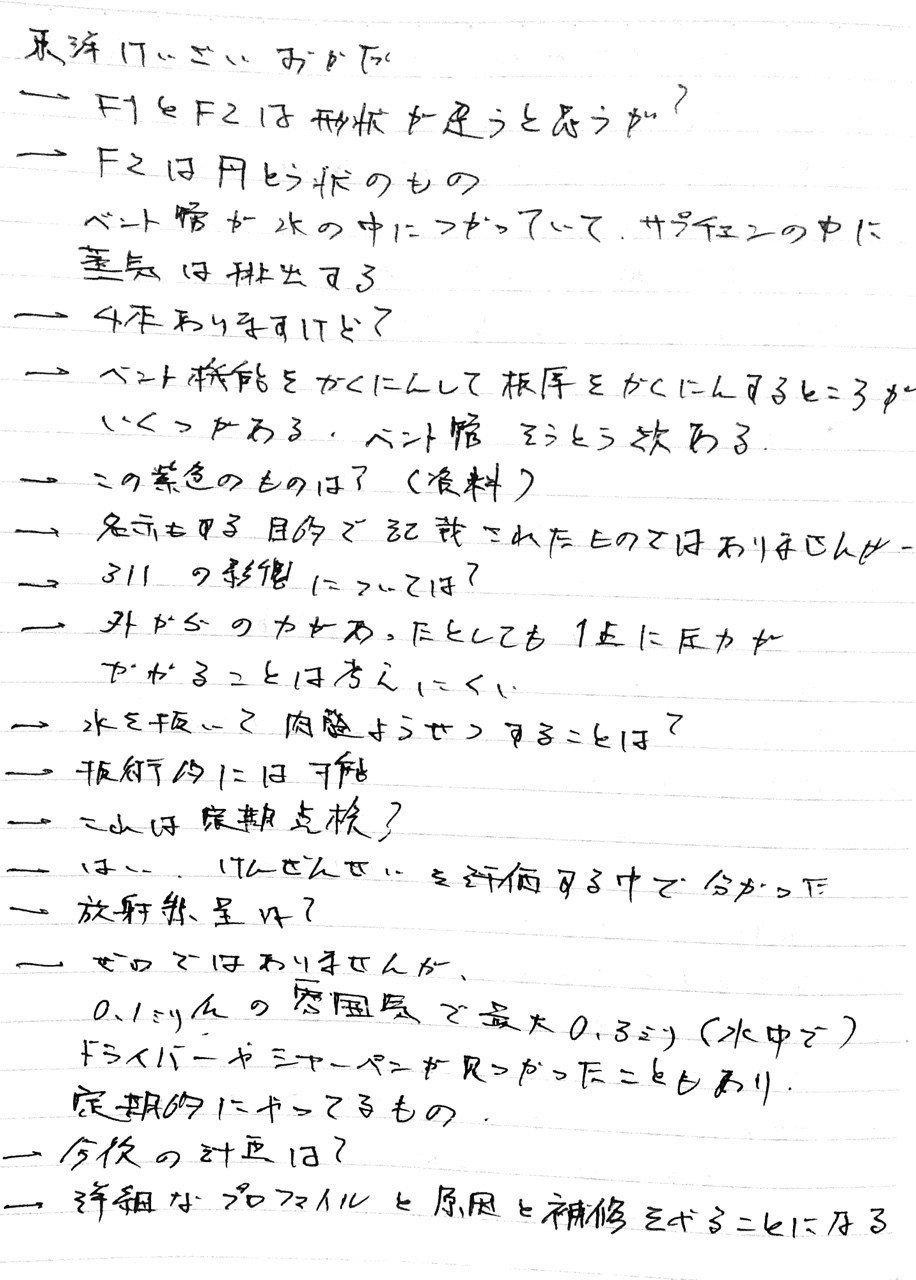 東洋けいざい おかだ
→ F1とF2は形状が違うと思うが?
→ F2は円とう状のもの
ベント管が水の中につかっていて、サプチェンの中に
蒸気は排出する
→ 4本ありますけど?
→ ベント機能をかくにんして板厚をかくにんするところが
いくつかある. ベント管 そうとう数ある.
→ この紫色のものは? (資料)
→ 名示もする目的で記載されたものではありませんがー
→ 311 の影響については?
→ 外からの力があったとしても 1点に圧力が
かかることは考えにくい
→ 水を抜いて 肉盛ようせつすることは?
→ 技術的には可能
→ これは定期点検?
→ はい. けんぜんせいを評価する中で分かった
→ 放射線量は?
→ ゼロではありませんが、
0.1ミリの雰囲気で最大0.3ミリ (水中で)
ドライバーやシャーペンが見つかったこともあり.
定期的にやってるもの.
→ 今後の計画は?
→ 詳細なプロファイルと原因と補修をやることになる